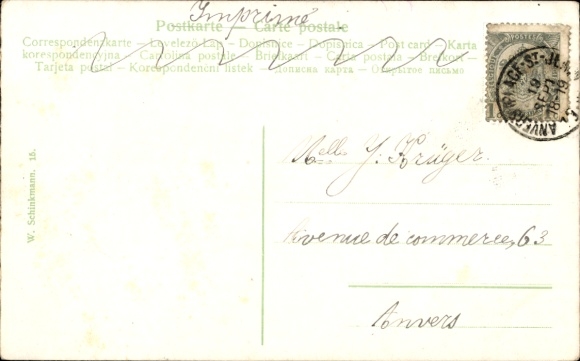 Imprimé
Postkarte — Carte postale
Correspondenzkarte — Levelező-Lap — Dopisnice — Dopisnica — Post card — Karta
korespondencyjna — Cartolina postale — Briefkaart — Carta postala — Brefkort —
Tarjeta postal — Korespondenční listek — Дописна карта — Открытое письмо
W. Schinkmann. 15.
Melle J. Krüger.
Avenue de commerce, 63
Anvers